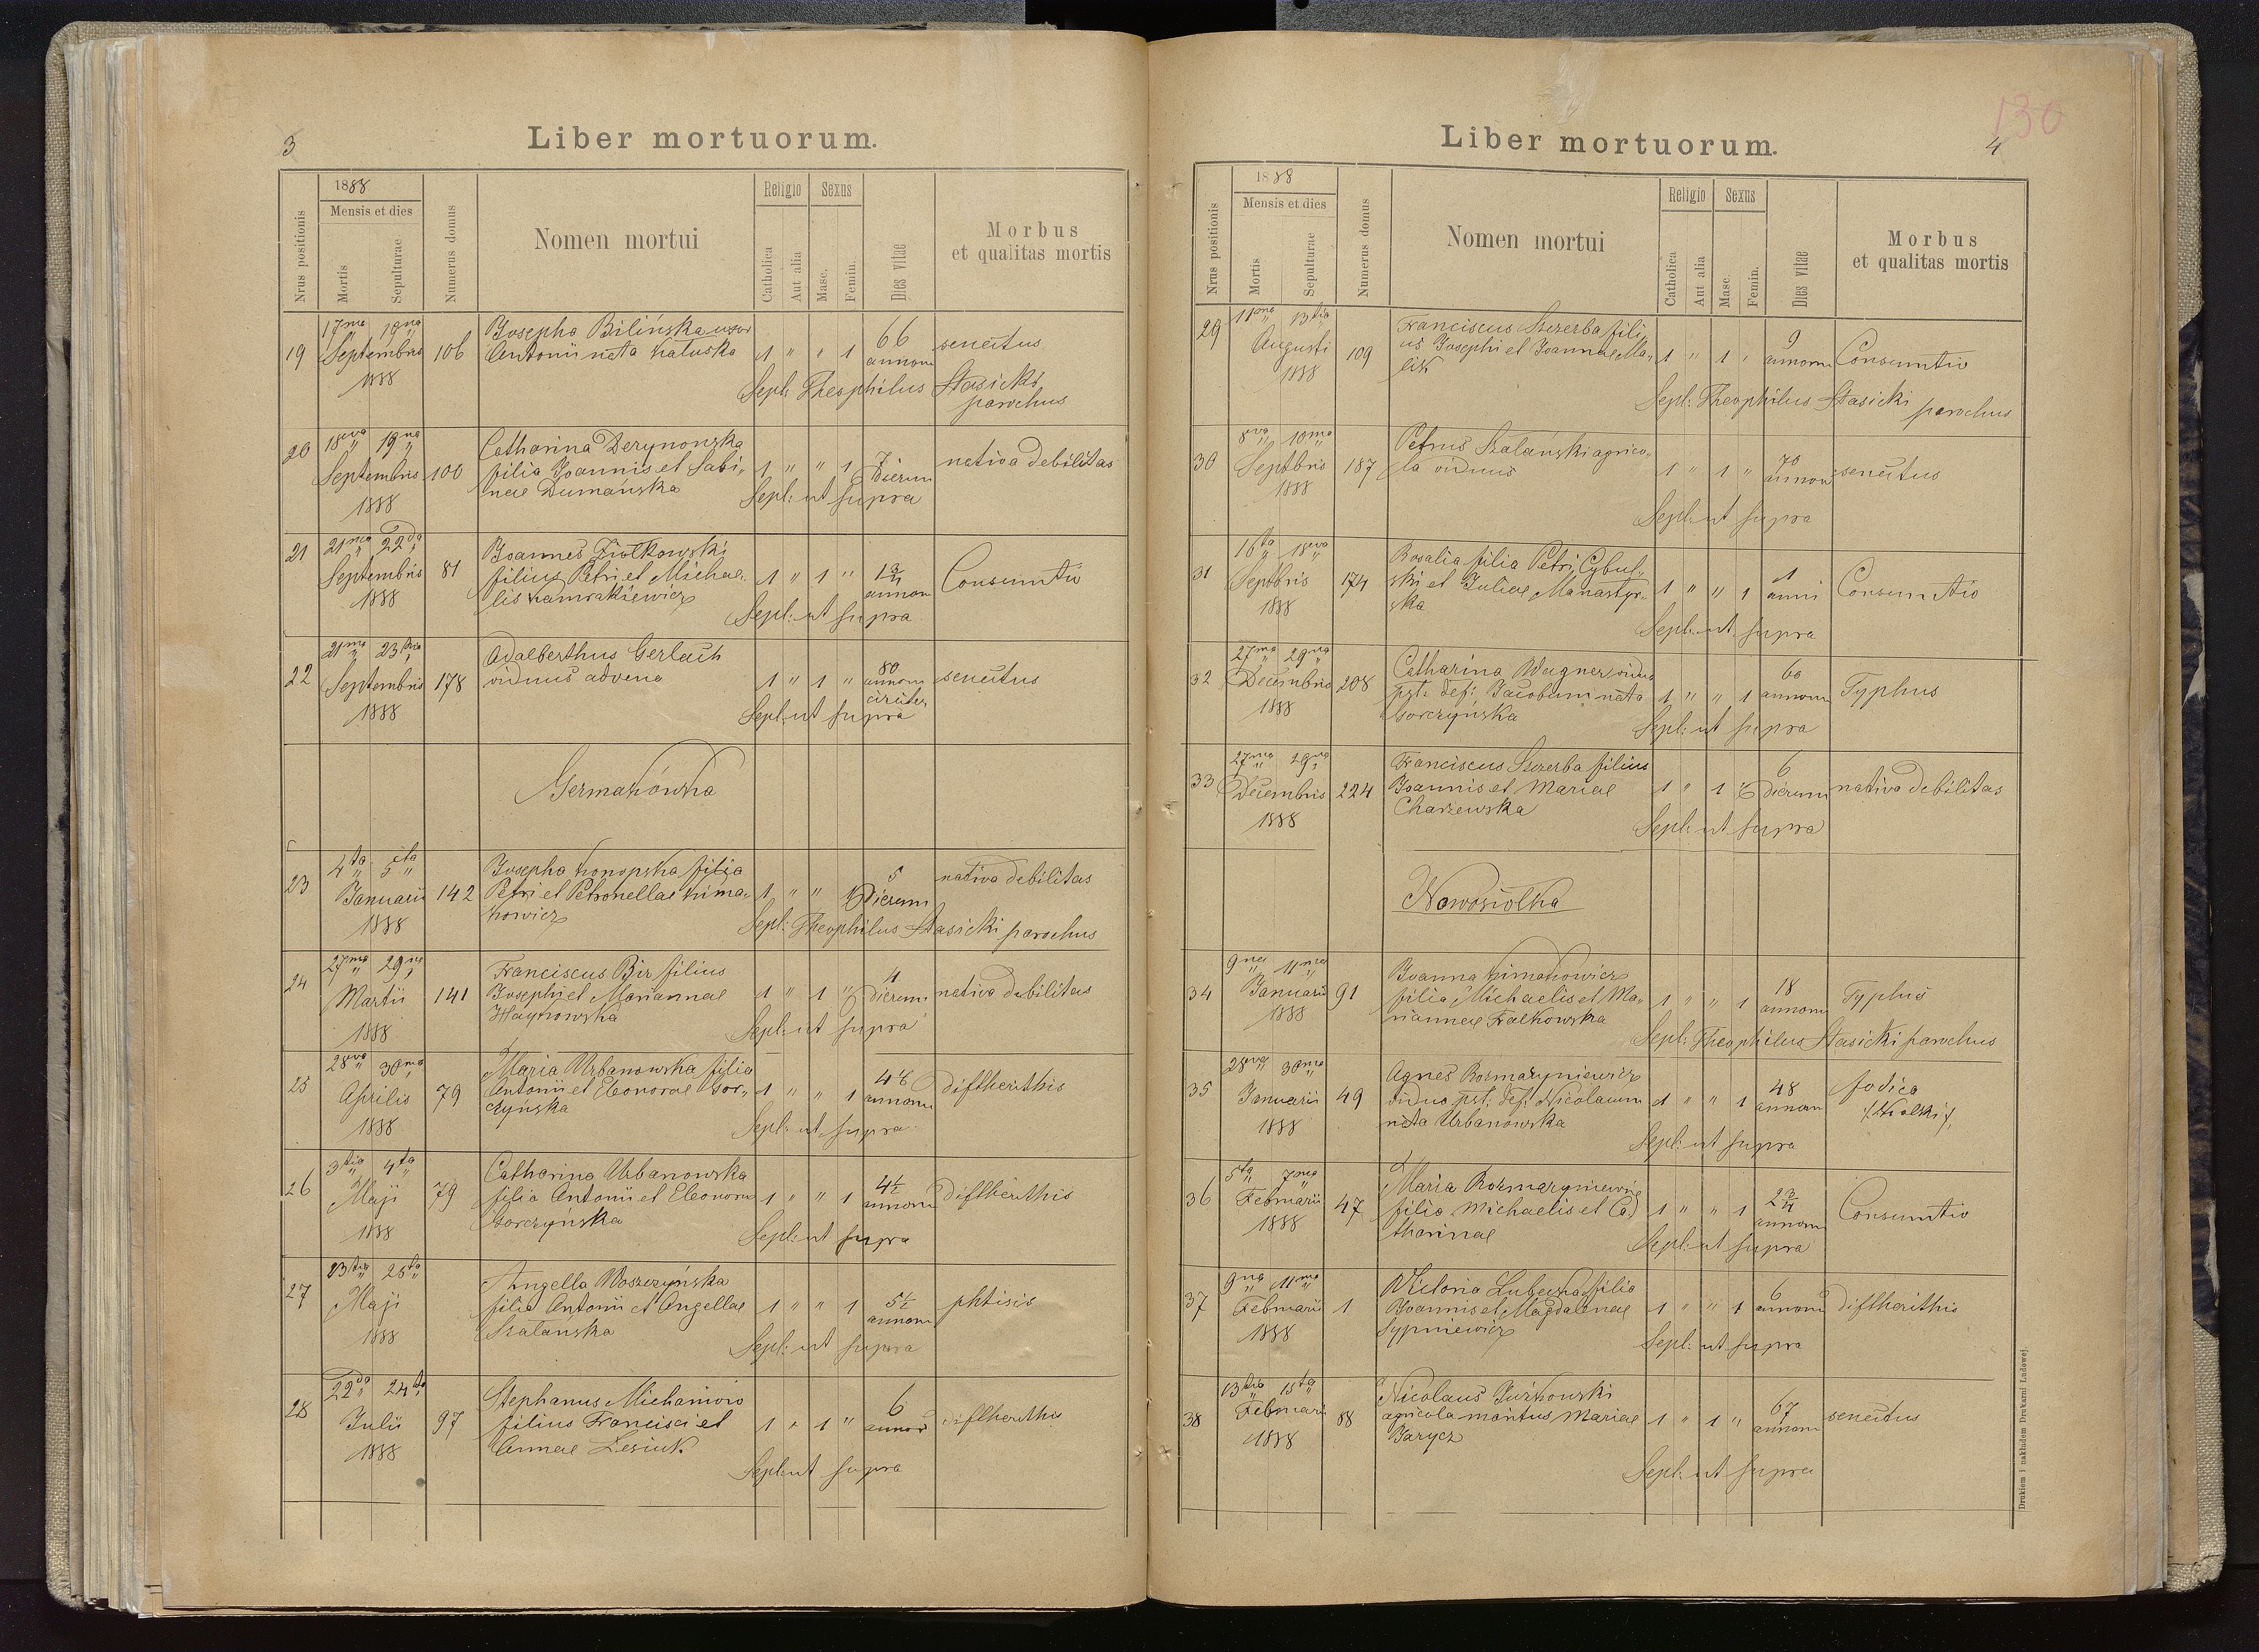 3
Liber mortuorum.
Nrus positionis
1888
Mensis et dies
Mortis
Sepulturae
Numerus domus
Nomen mortui
Religio
Catholica
Aut alia
Sexus
Masc.
Femin.
Dies vitae
Morbus
et qualitas mortis
19
17ma 19na
Septembris
1888
106
Josepha Bilińska uxor
Antonii nata Kałuska
1 " " 1
66
annorum
senectus
Sepl: Theophilus Stasicki
parochus
20
18va 19na
Septembris
1888
100
Catharina Derynowska
filia Joannis et Sabi-
nae Dumańska
1 " " 1
7
Dierum
nativa debilitas
Sepl: ut supra
21
21ma 22da
Septembris
1888
81
Joannes Ziółkowski
filius Petri et Michae-
lis
1 " 1 "
1 3/4
annorum
Consumtio
Sepl: ut supra
22
21ma 23tia
Septembris
1888
178
Adalberthus Gerlach
viduus advena
1 " 1 "
80
annorum
circiter
senectus
Sepl: ut supra
Germakówka
23
4ta 5ta
Januarii
1888
142
Josepha Konopska filia
Petri et Petronellae Kima-
kowicz
1 " " 1
5
Dierum
nativa debilitas
Sepl: Theophilus Stasicki parochus
24
27ma 29na
Martii
1888
141
Franciscus Bir filius
Josephi et Mariannae
Haynowska
1 " 1 "
4
Dierum
nativa debilitas
Sepl: ut supra
25
28va 30ma
Aprilis
1888
79
Maria Urbanowska filia
Antonii et Eleonorae Gor-
czyńska
1 " " 1
annorum
diftherithis
Sepl: ut supra
26
3tia 4ta
Maji
1888
79
Catharina Urbanowska
filia Antonii et Eleonorae
Gorczyńska
1 " " 1
4 1/2
annorum
diftherithis
Sepl: ut supra
27
23tia 25ta
Maji
1888
Angella Woszczyńska
filia Antonii et Angellae
Szałańska
1 " " 1
5 1/2
annorum
phtisis
Sepl: ut supra
28
22da 24ta
Julii
1888
97
Stephanus Michaniow
filius Francisci et
Annae Lesiuk
1 " 1 "
6
annor
diftherithis
Sepl: ut supra
130
4
Liber mortuorum.
Nrus positionis
1888
Mensis et dies
Mortis
Sepulturae
Numerus domus
Nomen mortui
Religio
Catholica
Aut alia
Sexus
Masc.
Femin.
Dies vitae
Morbus
et qualitas mortis
29
11ma 13tia
Augusti
1888
109
Franciscus Szczerba fili-
us Josephi et Joannae Ma-
lik
1 " 1 "
9
annorum
Consumtio
Sepl: Theophilus Stasicki parochus
30
8va 10ma
Septbris
1888
187
Petrus Szałański agrico-
la viduus
1 " 1 "
70
annorum
senectus
Sepl: ut supra
31
16ta 18va
Septbris
1888
174
Rosalia filia Petri Cybul-
ski et Juliae Manastyr-
ska
1 " " 1
1
anni
Consumtio
Sepl: ut supra
32
27ma 29na
Decembris
1888
208
Catharina Wagner vidua
pst: def: Jacobum nata
Gorczyńska
1 " " 1
60
annorum
Typhus
Sepl: ut supra
33
27ma 29na
Decembris
1888
224
Franciscus Szczerba filius
Joannis et Mariae
Charzewska
1 " 1
6
dierum
nativa debilitas
Sepl: ut supra
Nowosiółka
34
9na 11ma
Januarii
1888
91
Joanna Kimakowicz
filia Michaelis et Ma-
riannae Falkowska
1 " " 1
18
annorum
Typhus
Sepl: Theophilus Stasicki parochus
35
28va 30ma
Januarii
1888
49
Agnes Rozmaryniewicz
vidua pst: def: Nicolaum
nata Urbanowska
1 " " 1
48
annorum
fodica
/:Kolski:/
Sepl: ut supra
36
5ta 7ma
Februarii
1888
47
Maria Rozmaryniewicz
filia Michaelis et Ca-
tharinae
1 " " 1
2 3/4
annorum
Consumtio
Sepl: ut supra
37
9na 11ma
Februarii
1888
1
Victoria Lubecka filia
Joannis et Magdalenae
Sypniewicz
1 " " 1
6
annorum
diftherithis
Sepl: ut supra
38
13tia 15ta
Februarii
1888
88
Nicolaus Jurkowski
agricola maritus Mariae
Jarycz
1 " 1 "
67
annorum
senectus
Sepl: ut supra
Drukiem i nakładem Drukarni Ludowej.